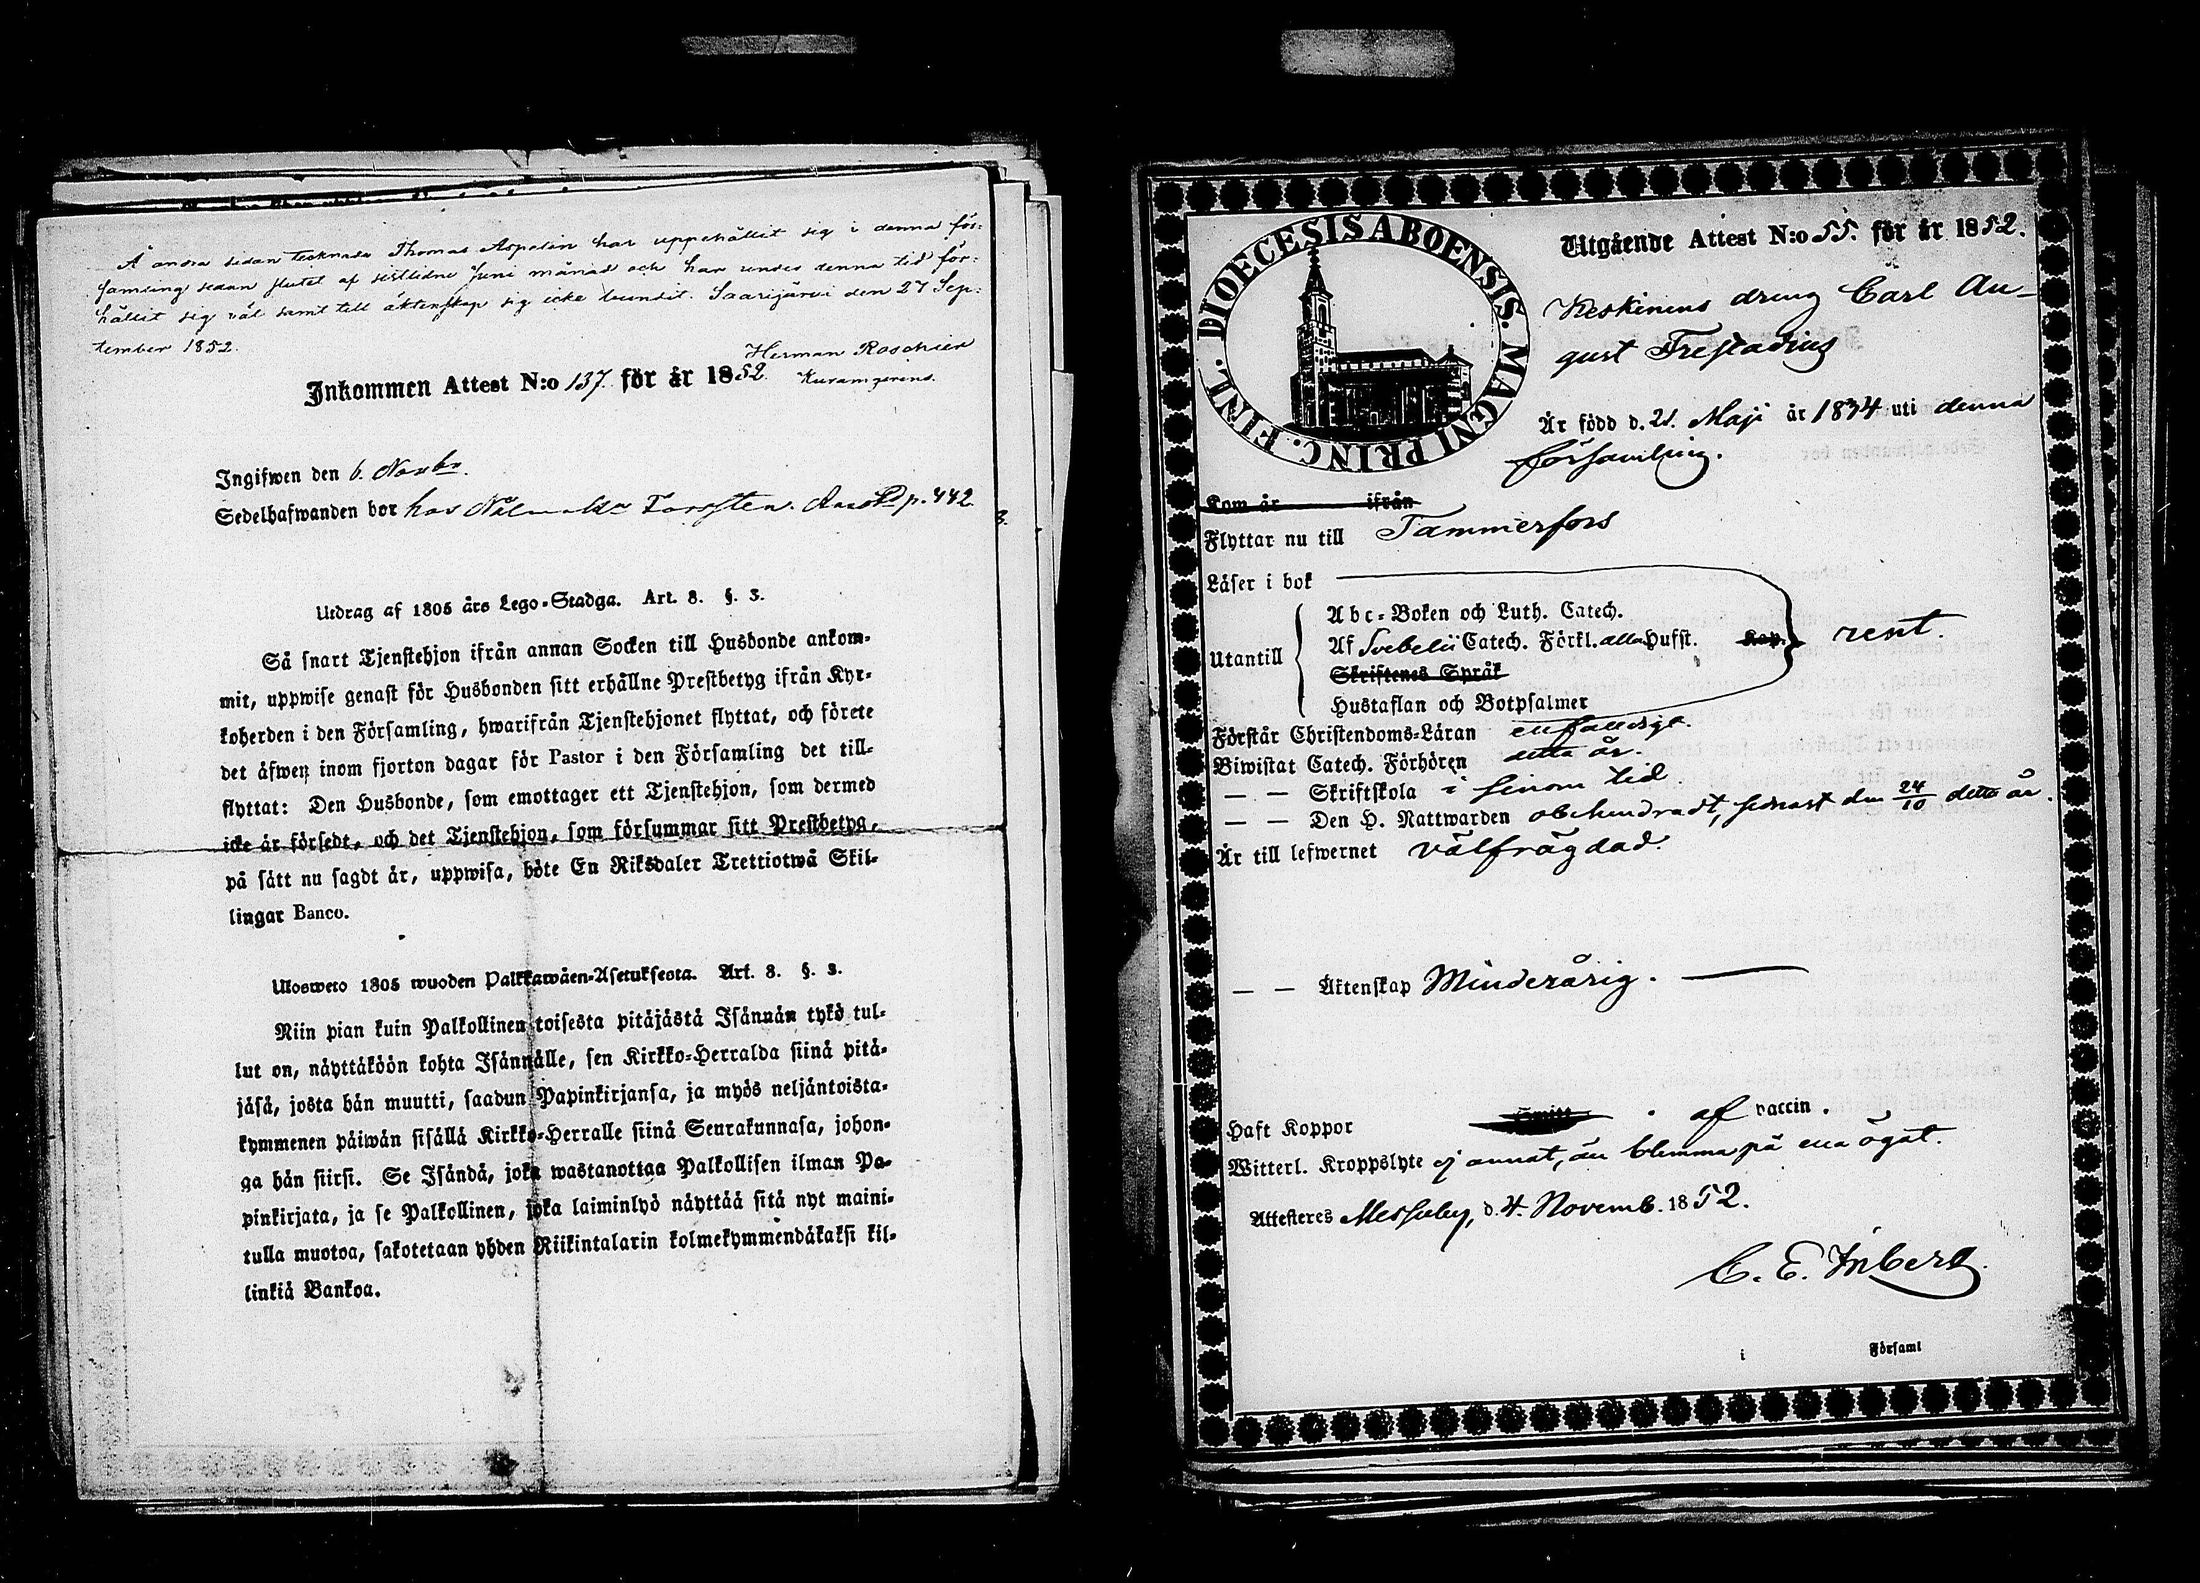 Å andra sidan tecknade Thomas Aspelin har uppehållit sig i denna för-
samling sedan slutet af sistlidne Juni månad och har under denna tid för-
hållit sig väl samt till äktenskap sig icke bundit. Saarijärvi den 27 Sep-
tember 1852.
Herman Roschier
Inkommen Attest N:o 137. för år 1852.
Ingifwen den 6. Novbr
Sedelhafwanden bor hos Torssten. p. 442
Utdrag af 1805 års Lego-Stadga. Art. 8. §. 3.
Så snart Tjenstehjon ifrån annan Socken till Husbonde ankom-
mit, uppwise genast för Husbonden sitt erhållne Prestbetyg ifrån Kyr-
koherden i den Församling, hwarifrån Tjenstehjonet flyttat, och förete
det äfwen inom fjorton dagar för Pastor i den Församling det till-
flyttat: Den Husbonde, som emottager ett Tjenstehjon, som dermed
icke är försedt, och det Tjenstehjon, som försummar sitt Prestbetyg,
på sätt nu sagdt är, uppwisa, böte En Riksdaler Trettiotwå Skil-
lingar Banco.
Ulosweto 1805 wuoden Palkkawäen-Asetuksesta. Art. 8. §. 3.
Niin pian kuin Palkollinen toisesta pitäjästä Isännän tykö tul-
lut on, näyttäköön kohta Isännälle, sen Kirkko-Herralda siinä pitä-
jäsä, josta hän muutti, saadun Papinkirjansa, ja myös neljäntoista-
kymmenen päiwän sisällä Kirkko-Herralle siinä Seurakunnasa, johon-
ga hän siirsi. Se Isändä, joka wastanottaa Palkollisen ilman Pa-
pinkirjata, ja se Palkollinen, joka laiminlyö näyttää sitä nyt maini-
tulla muotoa, sakotetaan yhden Riikintalarin kolmekymmendäkaksi kil-
linkiä Bankoa.
DIOECESIS ABOENSIS. MAGNI PRINC. FINL.
Utgående Attest N:o 55. för år 1852.
Keskinens dreng Carl Au-
gust Frestadius
Är född d. 21. Maji år 1834 uti denna
församling.
Kom år ifrån
Flyttar nu till Tammerfors
Läser i bok
Abc-Boken och Luth. Catech.
Utantill Af Svebelii Catech. Förkl. alla Hufst. Kap. rent.
Skriftenes Språk
Hustaflan och Botpsalmer
Förstår Christendoms-Läran enfaldigt.
Biwistat Catech. Förhören detta år.
— — Skriftskola i sinom tid.
— — Den H. Nattwarden obehindradt, sednast den 24/10 detta år.
Är till lefwernet välfrägdad.
— — Äktenskap Minderårig. —
Haft Koppor af vaccin.
Witterl. Kroppslyte ej annat, än blemma på ena ögat.
Attesteres Messuby, d. 4. Novemb. 1852.
C. E. Inberg.
i Församl